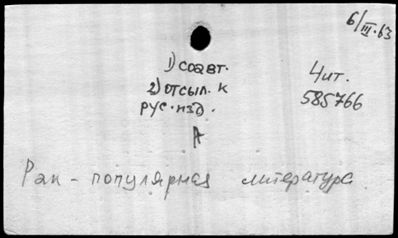 6/III.63
1) соавт.
2) отсыл. к
рус. изд.
Чит.
585766
А
Рак - популярная литература